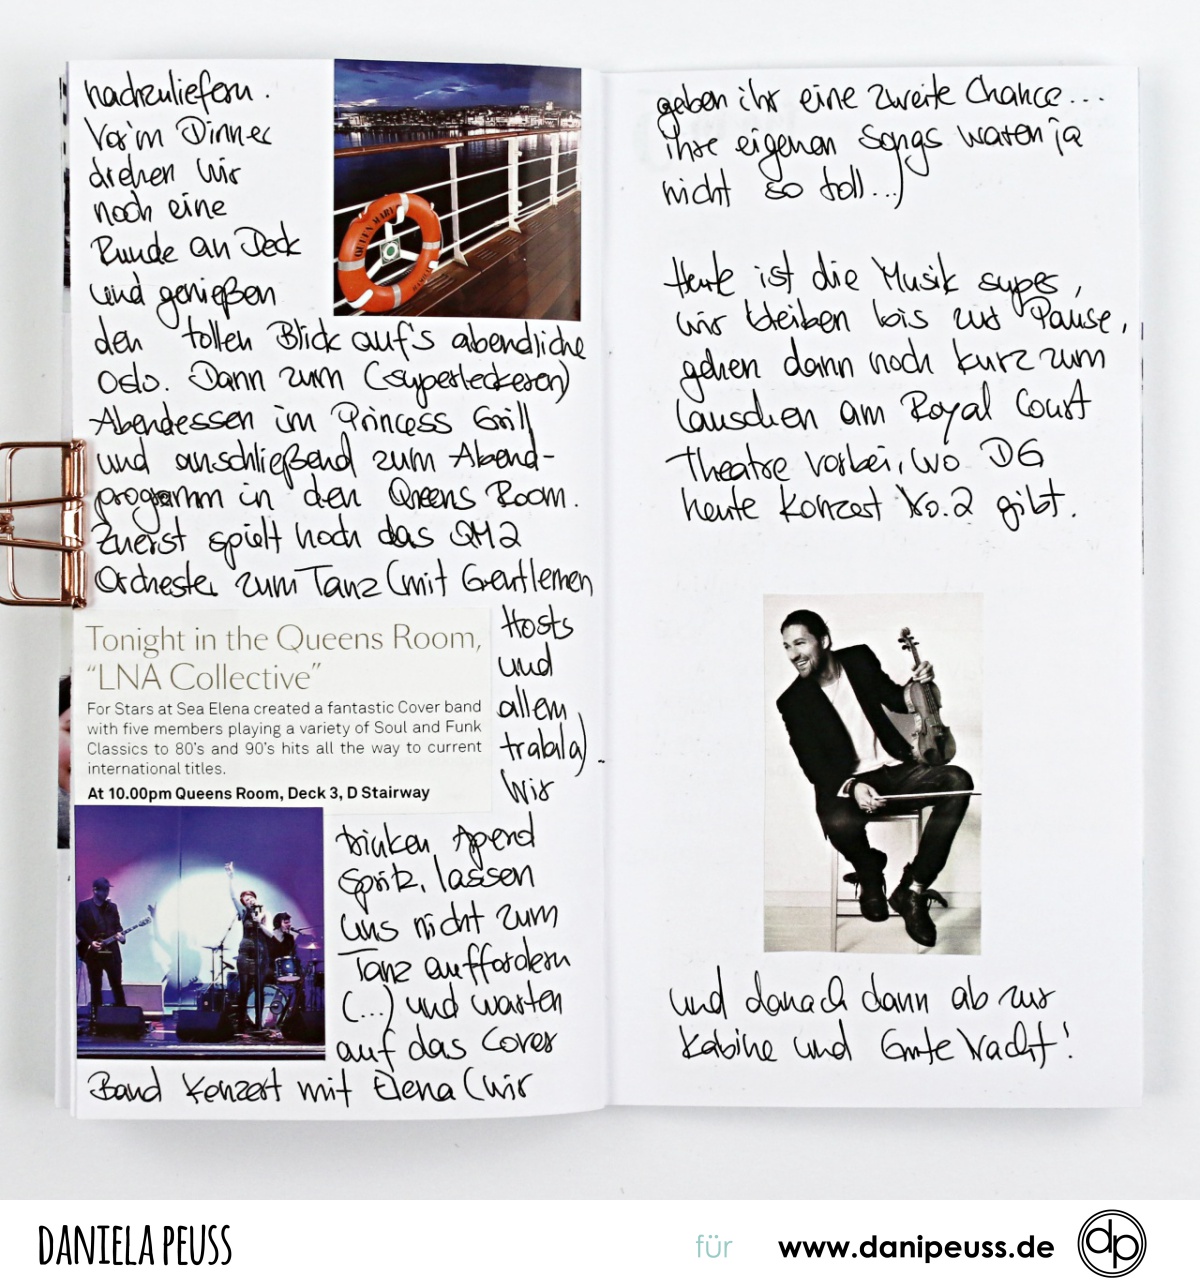 nachzuliefern.
Vor'm Dinner
drehen wir
noch eine
Runde an Deck
und genießen
den tollen Blick auf's abendliche
Oslo. Dann zum (superleckeren)
Abendessen im Princess Grill
und anschließend zum Abend-
programm in den Queens Room.
Zuerst spielt noch das QM2
Orchester zum Tanz (mit Gentlemen
Hosts
und
allem
trabla).
Wir
Tonight in the Queens Room,
“LNA Collective”
For Stars at Sea Elena created a fantastic Cover band
with five members playing a variety of Soul and Funk
Classics to 80's and 90's hits all the way to current
international titles.
At 10.00pm Queens Room, Deck 3, D Stairway
trinken Aperol
Spritz, lassen
uns nicht zum
Tanz auffordern
(...) und warten
auf das Cover
Band Konzert mit Elena (wir
geben ihr eine zweite Chance...
ihre eigenen Songs waren ja
nicht so toll...)
Heute ist die Musik super,
wir bleiben bis zur Pause,
gehen dann noch kurz zum
Lauschen am Royal Court
Theatre vorbei, wo DG
heute Konzert No.2 gibt.
und danach dann ab zur
Kabine und Gute Nacht!
QUEEN MARY
DANIELA PEUSS
für
www.danipeuss.de
dp